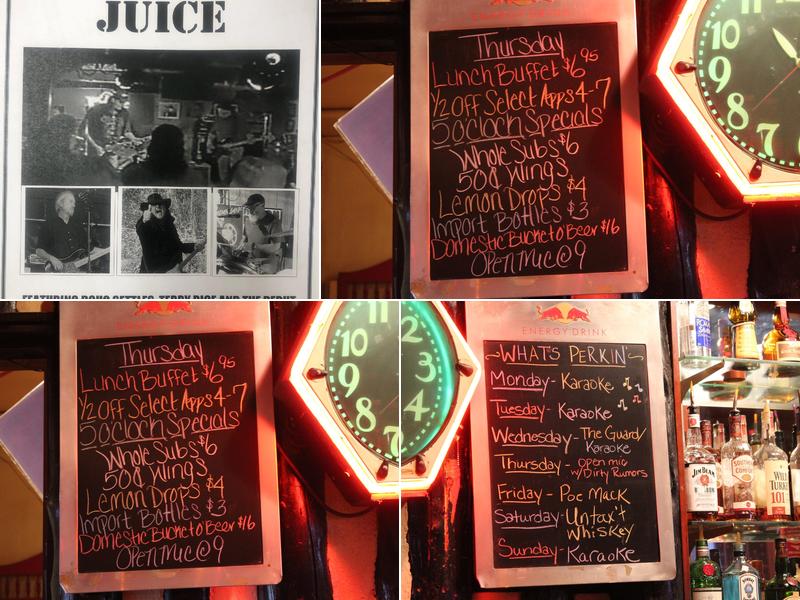 JUICE
Thursday
Lunch Buffet $6.95
1/2 Off Select Apps 4-7
5 O'clock Specials
Whole Subs $6
50¢ Wings
Lemon Drops $4
Import Bottles $3
Domestic Bucket o' Beer $16
Open Mic @ 9
10
9
8
7
Thursday
Lunch Buffet $6.95
1/2 Off Select Apps 4-7
5 O'clock Specials
Whole Subs $6
50¢ Wings
Lemon Drops $4
Import Bottles $3
Domestic Bucket o' Beer $16
Open Mic @ 9
11
10
9
8
7
2
3
4
ENERGY DRINK
~WHAT'S PERKIN'~
Monday - Karaoke
Tuesday - Karaoke
Wednesday - The Guard/
Karaoke
Thursday - Open mic
w/Dirty Rumors
Friday - Poc Mack
Saturday - Untax't
Whiskey
Sunday - Karaoke
JIM BEAM
SOUTHERN
COMFORT
WILD
TURKEY
101